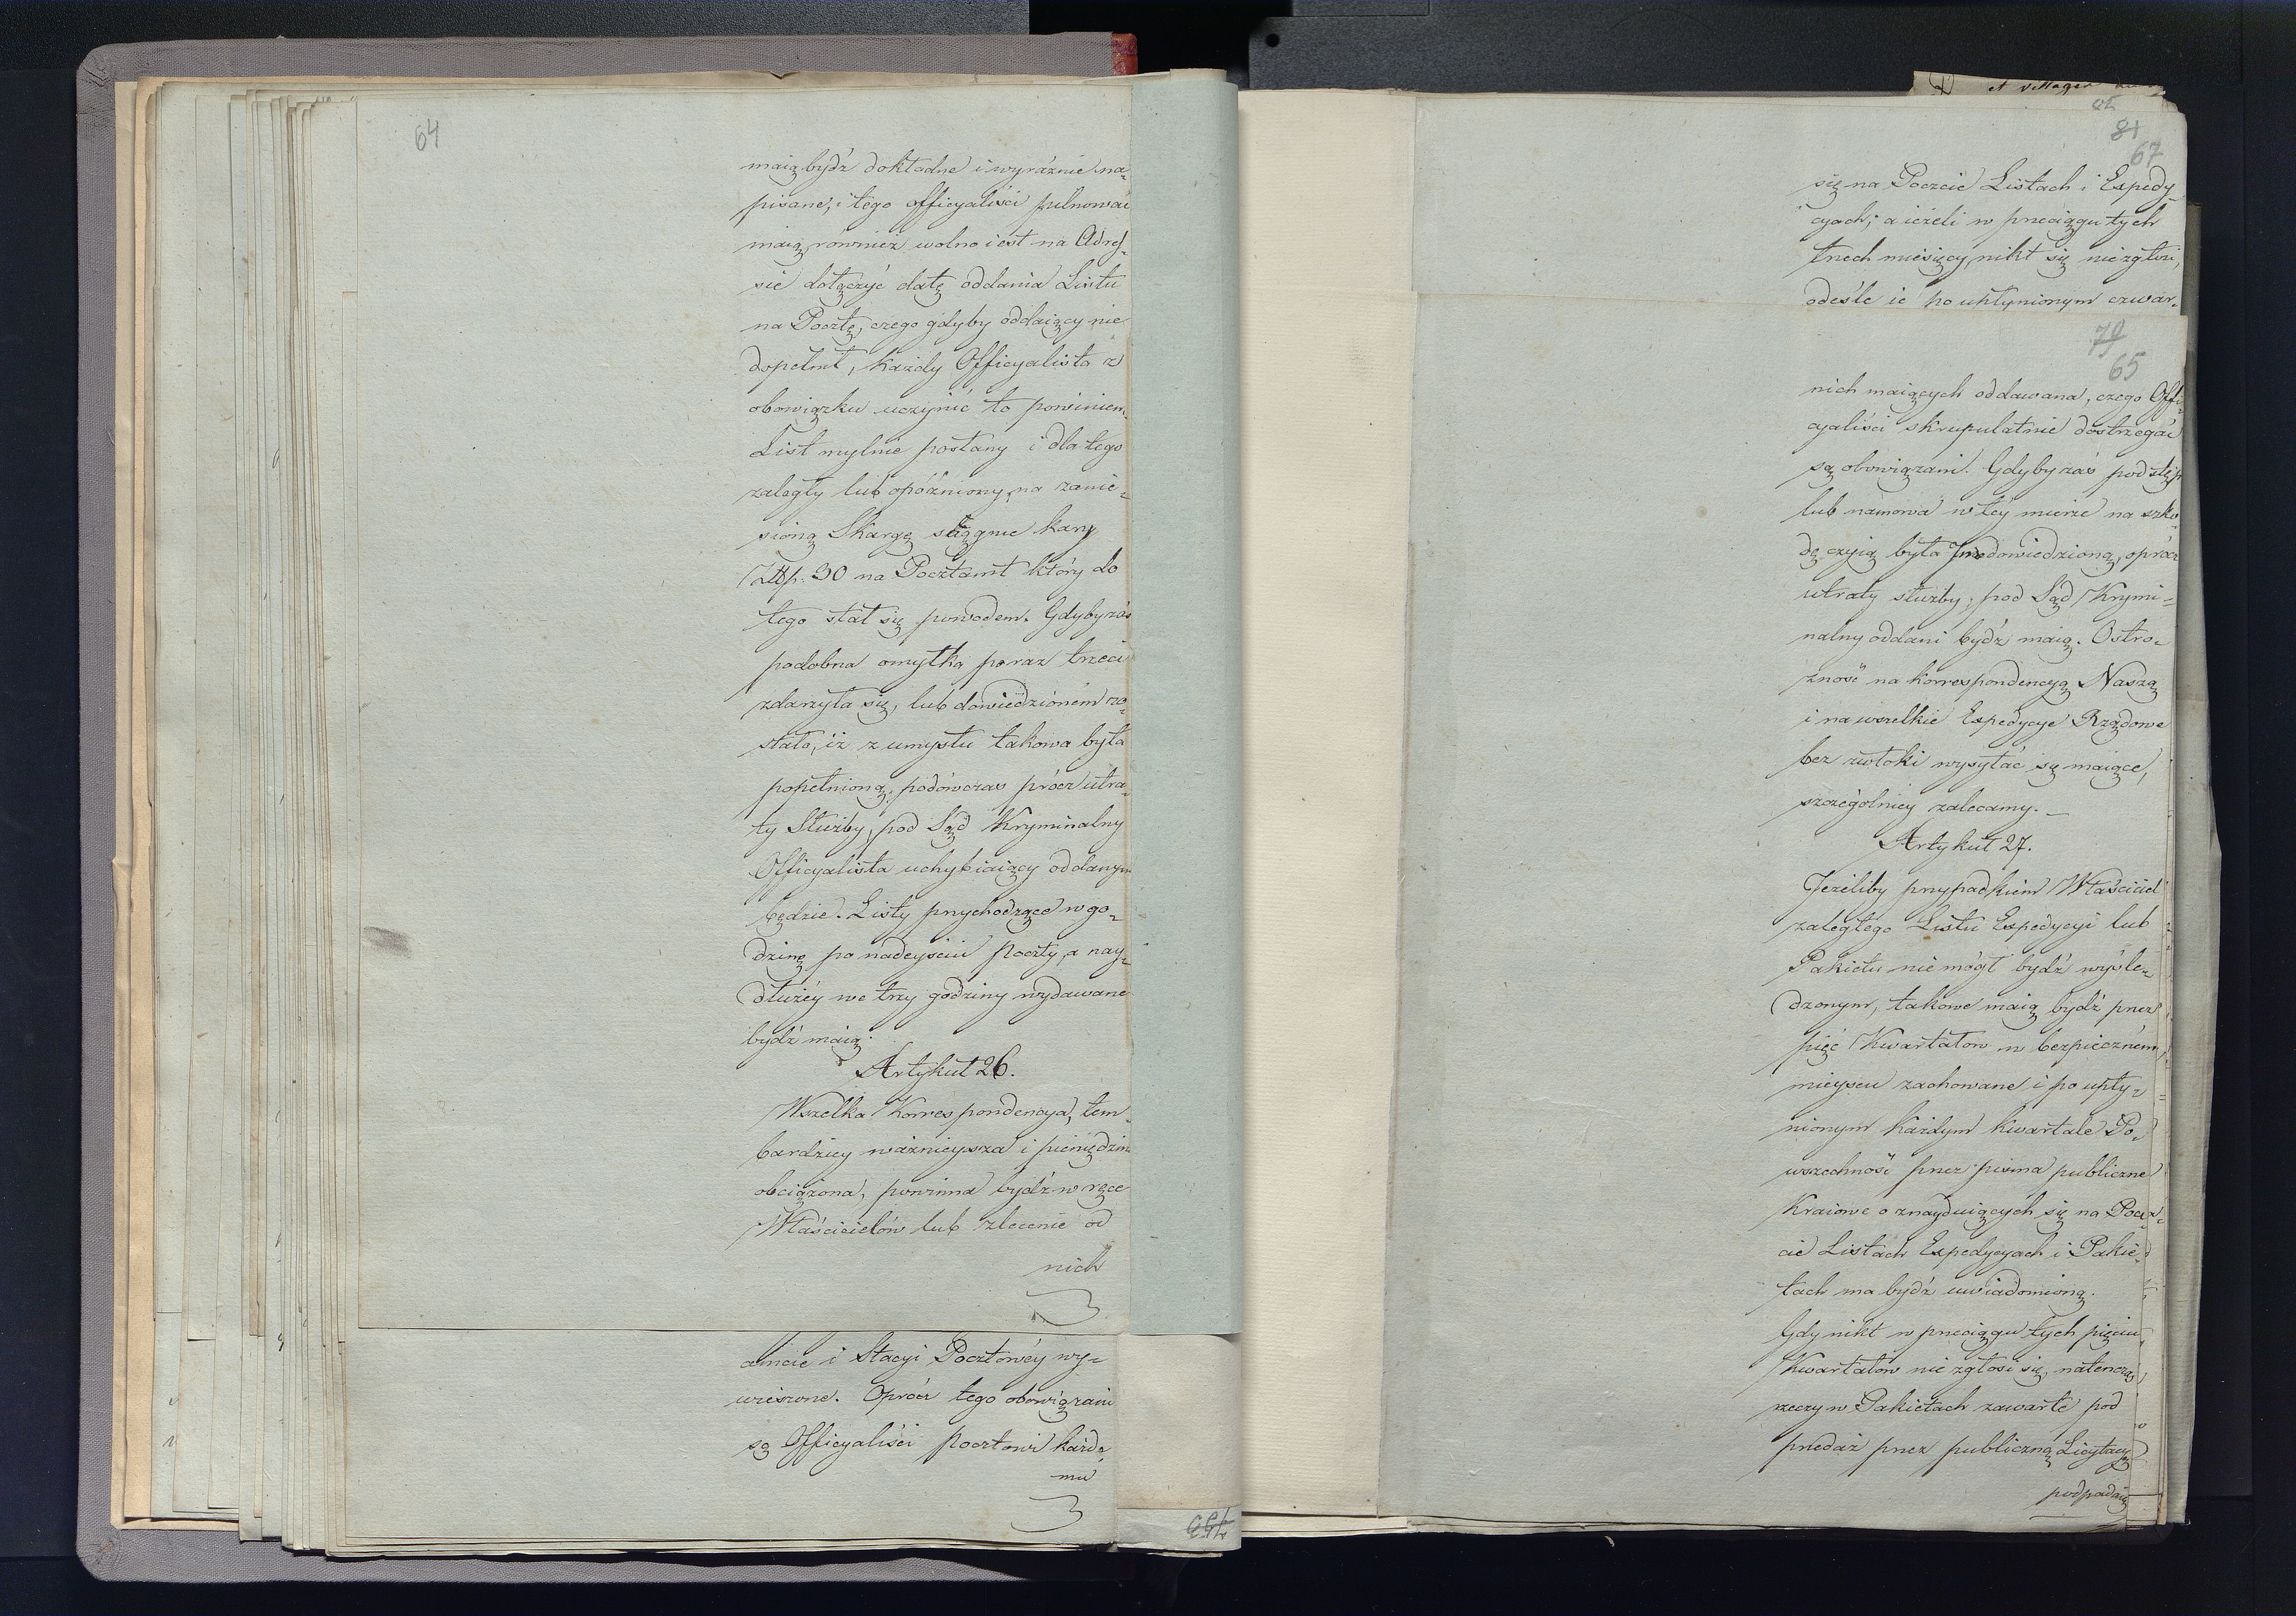 64
maią bydź dokładne i wyraźnie na-
pisane, i tego officyaliści pilnować
maią, również wolno iest na Adres-
sie dołączyć datę oddania Listu
na Pocztę, czego gdyby oddaiący nie
dopełnił, każdy Officyalista z
obowiązku uczynić to powinien.
List mylnie posłany i dla tego
zaległy lub opóźniony, na zanie-
sioną Skargę ściągnie kary
Złłp. 30 na Pocztamt który do
tego stał się powodem. Gdyby zaś
podobna omyłka po raz trzeci
zdarzyła się, lub dowiedzionem zo-
stało, iż z umysłu takowa była
popełnioną, podówczas prócz utra-
ty Służby, pod Sąd Kryminalny
Officyalista uchybiaiący oddanym
będzie. Listy przychodzące w go-
dzinę po nadeyściu Poczty, a nay-
dłużéy we trzy godziny wydawane
bydź maią.
Artykuł 26.
Wszelka Korrespondencya, tem
bardziey ważnieysza i pieniędzmi
obciążona, powinna bydź w ręce
Właścicielów lub zlecenie od
nich
amcie i Stacyi Pocztowéy wy-
wieszone. Oprócz tego obowiązani
są Officyaliści Pocztowi każde-
mu
et villages
81
67
się na Poczcie Listach i Expedy-
cyach; a ieżeli w przeciągu tych
trzech miesięcy, nikt się nie zgłosi,
odeśle ie po upłynionym czwar-
79
65
nich maiących oddawana, czego Offi-
cyaliści skrupulatnie dostrzegać
są obowiązani. Gdyby zaś podstęp
lub namowa w téy mierze na szko-
dę czyią była dowiedzioną, oprócz
utraty służby, pod Sąd Krymi-
nalny oddani bydź maią. Ostro-
żność na Korrespondencyą Naszą
i na wszelkie Expedycye Rządowe
bez zwłoki wysyłać się maiące,
szczególniey zalecamy.
Artykuł 27.
Jeżeliby przypadkiem Właściciel
zaległego Listu Expedycyi lub
Pakietu nie mógł bydź wyśle-
dzonym, takowe maią bydź przez
pięć Kwartałów w bezpieczném
mieyscu zachowane i po upły-
nionym każdym kwartale Po-
wszechność przez pisma publiczne
Kraiowe o znayduiących się na Pocz-
cie Listach Expedycyach i Pakie-
tach ma bydź uwiadomioną.
Gdy nikt w przeciągu tych pięciu
Kwartałów nie zgłosi się, natenczas
rzeczy w Pakietach zawarte pod
przedaż przez publiczną Licytacyą
podpadaią